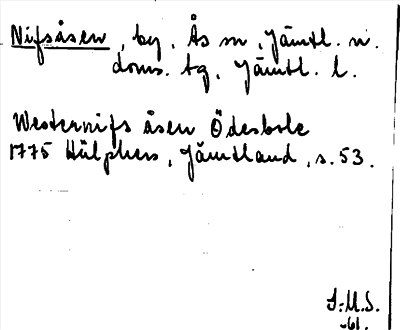 Nifsåsen, by, Ås sn, Jämtl. n.
doms. tg, Jämtl. l.
Westernifs åsen Ödesbole
1775 Hülphers, Jämtland, s. 53.
S:M.S.
-61.